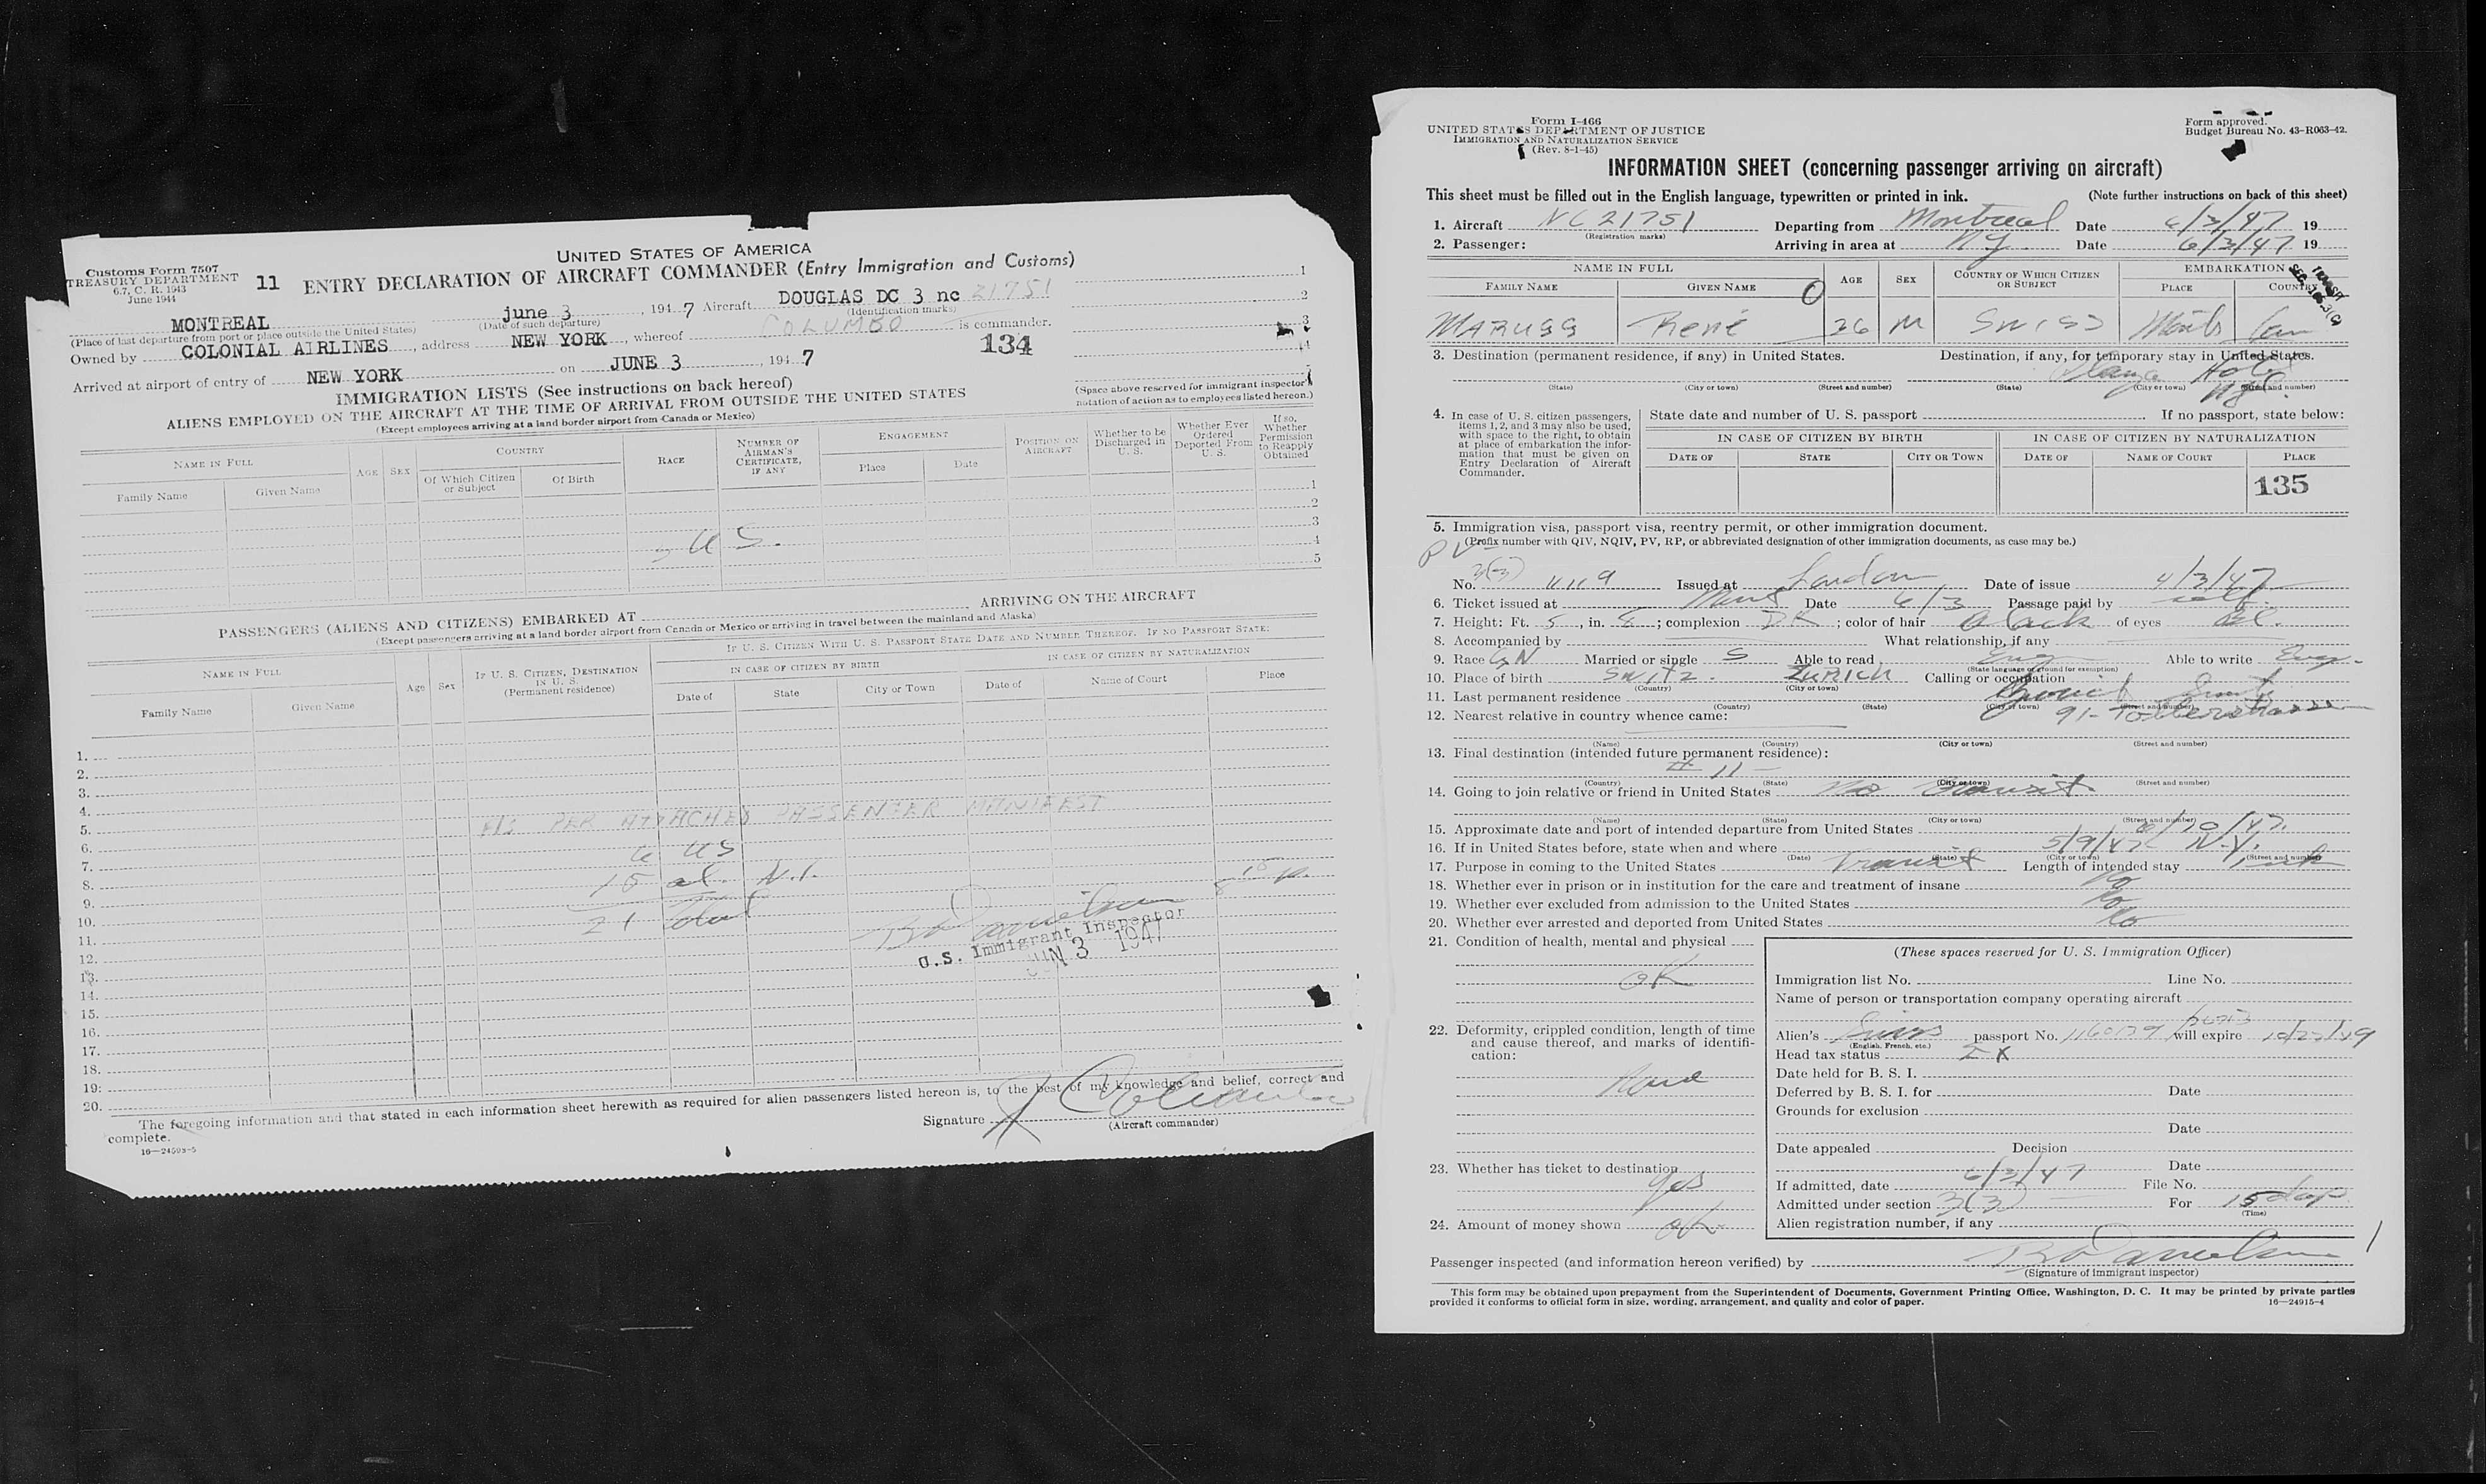 UNITED STATES OF AMERICA
Customs Form 7507
TREASURY DEPARTMENT
6.7, C. R. 1943
June 1944
11 ENTRY DECLARATION OF AIRCRAFT COMMANDER (Entry Immigration and Customs)
1
MONTREAL june 3, 1947 Aircraft DOUGLAS DC 3 nc 21751
2
(Place of last departure from port or place outside the United States) (Date of such departure) (Identification marks)
3
Owned by COLONIAL AIRLINES, address NEW YORK, whereof COLUMBO is commander.
134
4
Arrived at airport of entry of NEW YORK on JUNE 3, 1947
IMMIGRATION LISTS (See instructions on back hereof)
(Space above reserved for immigrant inspector's notation of action as to employees listed hereon.)
ALIENS EMPLOYED ON THE AIRCRAFT AT THE TIME OF ARRIVAL FROM OUTSIDE THE UNITED STATES
(Except employees arriving at a land border airport from Canada or Mexico)
NAME IN FULL AGE SEX COUNTRY RACE NUMBER OF AIRMAN'S CERTIFICATE, IF ANY ENGAGEMENT POSITION ON AIRCRAFT Whether to be Discharged in U. S. Whether Ever Ordered Deported From U. S. If so, Whether Permission to Reapply Obtained
Family Name Given Name Of Which Citizen or Subject Of Birth Place Date
1
2
3
U S.
4
5
PASSENGERS (ALIENS AND CITIZENS) EMBARKED AT ARRIVING ON THE AIRCRAFT
(Except passengers arriving at a land border airport from Canada or Mexico or arriving in travel between the mainland and Alaska)
NAME IN FULL Age Sex IF U. S. CITIZEN, DESTINATION IN U. S. (Permanent residence) IF U. S. CITIZEN WITH U. S. PASSPORT STATE DATE AND NUMBER THEREOF. IF NO PASSPORT STATE:
IN CASE OF CITIZEN BY BIRTH IN CASE OF CITIZEN BY NATURALIZATION
Family Name Given Name Date of State City or Town Date of Name of Court Place
1.
2.
3.
4.
5. AS PER ATTACHED PASSENGER MANIFEST
6.
7. 6 US
8. 15 al. N.Y.
9.
10. 21 Total
11.
12. U.S. Immigrant Inspector
13. JUN 3 1947
14.
15.
16.
17.
18.
19.
20.
The foregoing information and that stated in each information sheet herewith as required for alien passengers listed hereon is, to the best of my knowledge and belief, correct and complete.
Signature Columbo
(Aircraft commander)
16—24593-5
Form I-466
UNITED STATES DEPARTMENT OF JUSTICE
IMMIGRATION AND NATURALIZATION SERVICE
(Rev. 8-1-45)
Form approved.
Budget Bureau No. 43-R063-42.
INFORMATION SHEET (concerning passenger arriving on aircraft)
This sheet must be filled out in the English language, typewritten or printed in ink. (Note further instructions on back of this sheet)
1. Aircraft NC 21751 Departing from Montreal Date 6/3/47 19
(Registration marks)
2. Passenger: Arriving in area at NY Date 6/3/47 19
NAME IN FULL AGE SEX COUNTRY OF WHICH CITIZEN OR SUBJECT EMBARKATION
FAMILY NAME GIVEN NAME PLACE COUNTRY
MARUGG René 26 M SWISS Can
3. Destination (permanent residence, if any) in United States. Destination, if any, for temporary stay in United States.
Hotel
(State) (City or town) (Street and number) (State) (City or town) (Street and number)
4. In case of U. S. citizen passengers, items 1, 2, and 3 may also be used, with space to the right, to obtain at place of embarkation the information that must be given on Entry Declaration of Aircraft Commander.
State date and number of U. S. passport If no passport, state below:
IN CASE OF CITIZEN BY BIRTH IN CASE OF CITIZEN BY NATURALIZATION
DATE OF STATE CITY OR TOWN DATE OF NAME OF COURT PLACE
135
5. Immigration visa, passport visa, reentry permit, or other immigration document.
(Prefix number with QIV, NQIV, PV, RP, or abbreviated designation of other immigration documents, as case may be.)
PV
3(3)
No. Issued at London Date of issue 4/3/47
6. Ticket issued at Date 6/3 Passage paid by self
7. Height: Ft. 5, in. 8; complexion DK; color of hair Black of eyes Bl.
8. Accompanied by What relationship, if any
9. Race GN Married or single S Able to read Eng Able to write Eng.
(State language or ground for exemption)
10. Place of birth SWITZ. ZURICH Calling or occupation
(Country) (City or town)
11. Last permanent residence Zurich
(Country) (State) (City or town) (Street and number)
12. Nearest relative in country whence came:
(Name) (Country) (City or town) (Street and number)
13. Final destination (intended future permanent residence):
# 11 —
(Country) (State) (City or town) (Street and number)
14. Going to join relative or friend in United States No Transit
(Name) (State) (City or town) (Street and number)
15. Approximate date and port of intended departure from United States 6/10/47.
16. If in United States before, state when and where 5/9/47 N.Y.
(Date) (State) (City or town) (Street and number)
17. Purpose in coming to the United States Transit Length of intended stay
18. Whether ever in prison or in institution for the care and treatment of insane No
19. Whether ever excluded from admission to the United States No
20. Whether ever arrested and deported from United States No
21. Condition of health, mental and physical
OK
22. Deformity, crippled condition, length of time and cause thereof, and marks of identification:
None
23. Whether has ticket to destination
Yes
24. Amount of money shown ok
(These spaces reserved for U. S. Immigration Officer)
Immigration list No. Line No.
Name of person or transportation company operating aircraft
Alien's Swiss passport No. will expire
(English, French, etc.)
Head tax status
Date held for B. S. I.
Deferred by B. S. I. for Date
Grounds for exclusion
Date
Date appealed Decision
Date
If admitted, date 6/3/47 File No.
Admitted under section 3(3) For 15 days
(Time)
Alien registration number, if any
Passenger inspected (and information hereon verified) by
(Signature of immigrant inspector)
This form may be obtained upon prepayment from the Superintendent of Documents, Government Printing Office, Washington, D. C. It may be printed by private parties
provided it conforms to official form in size, wording, arrangement, and quality and color of paper. 16—24915-4